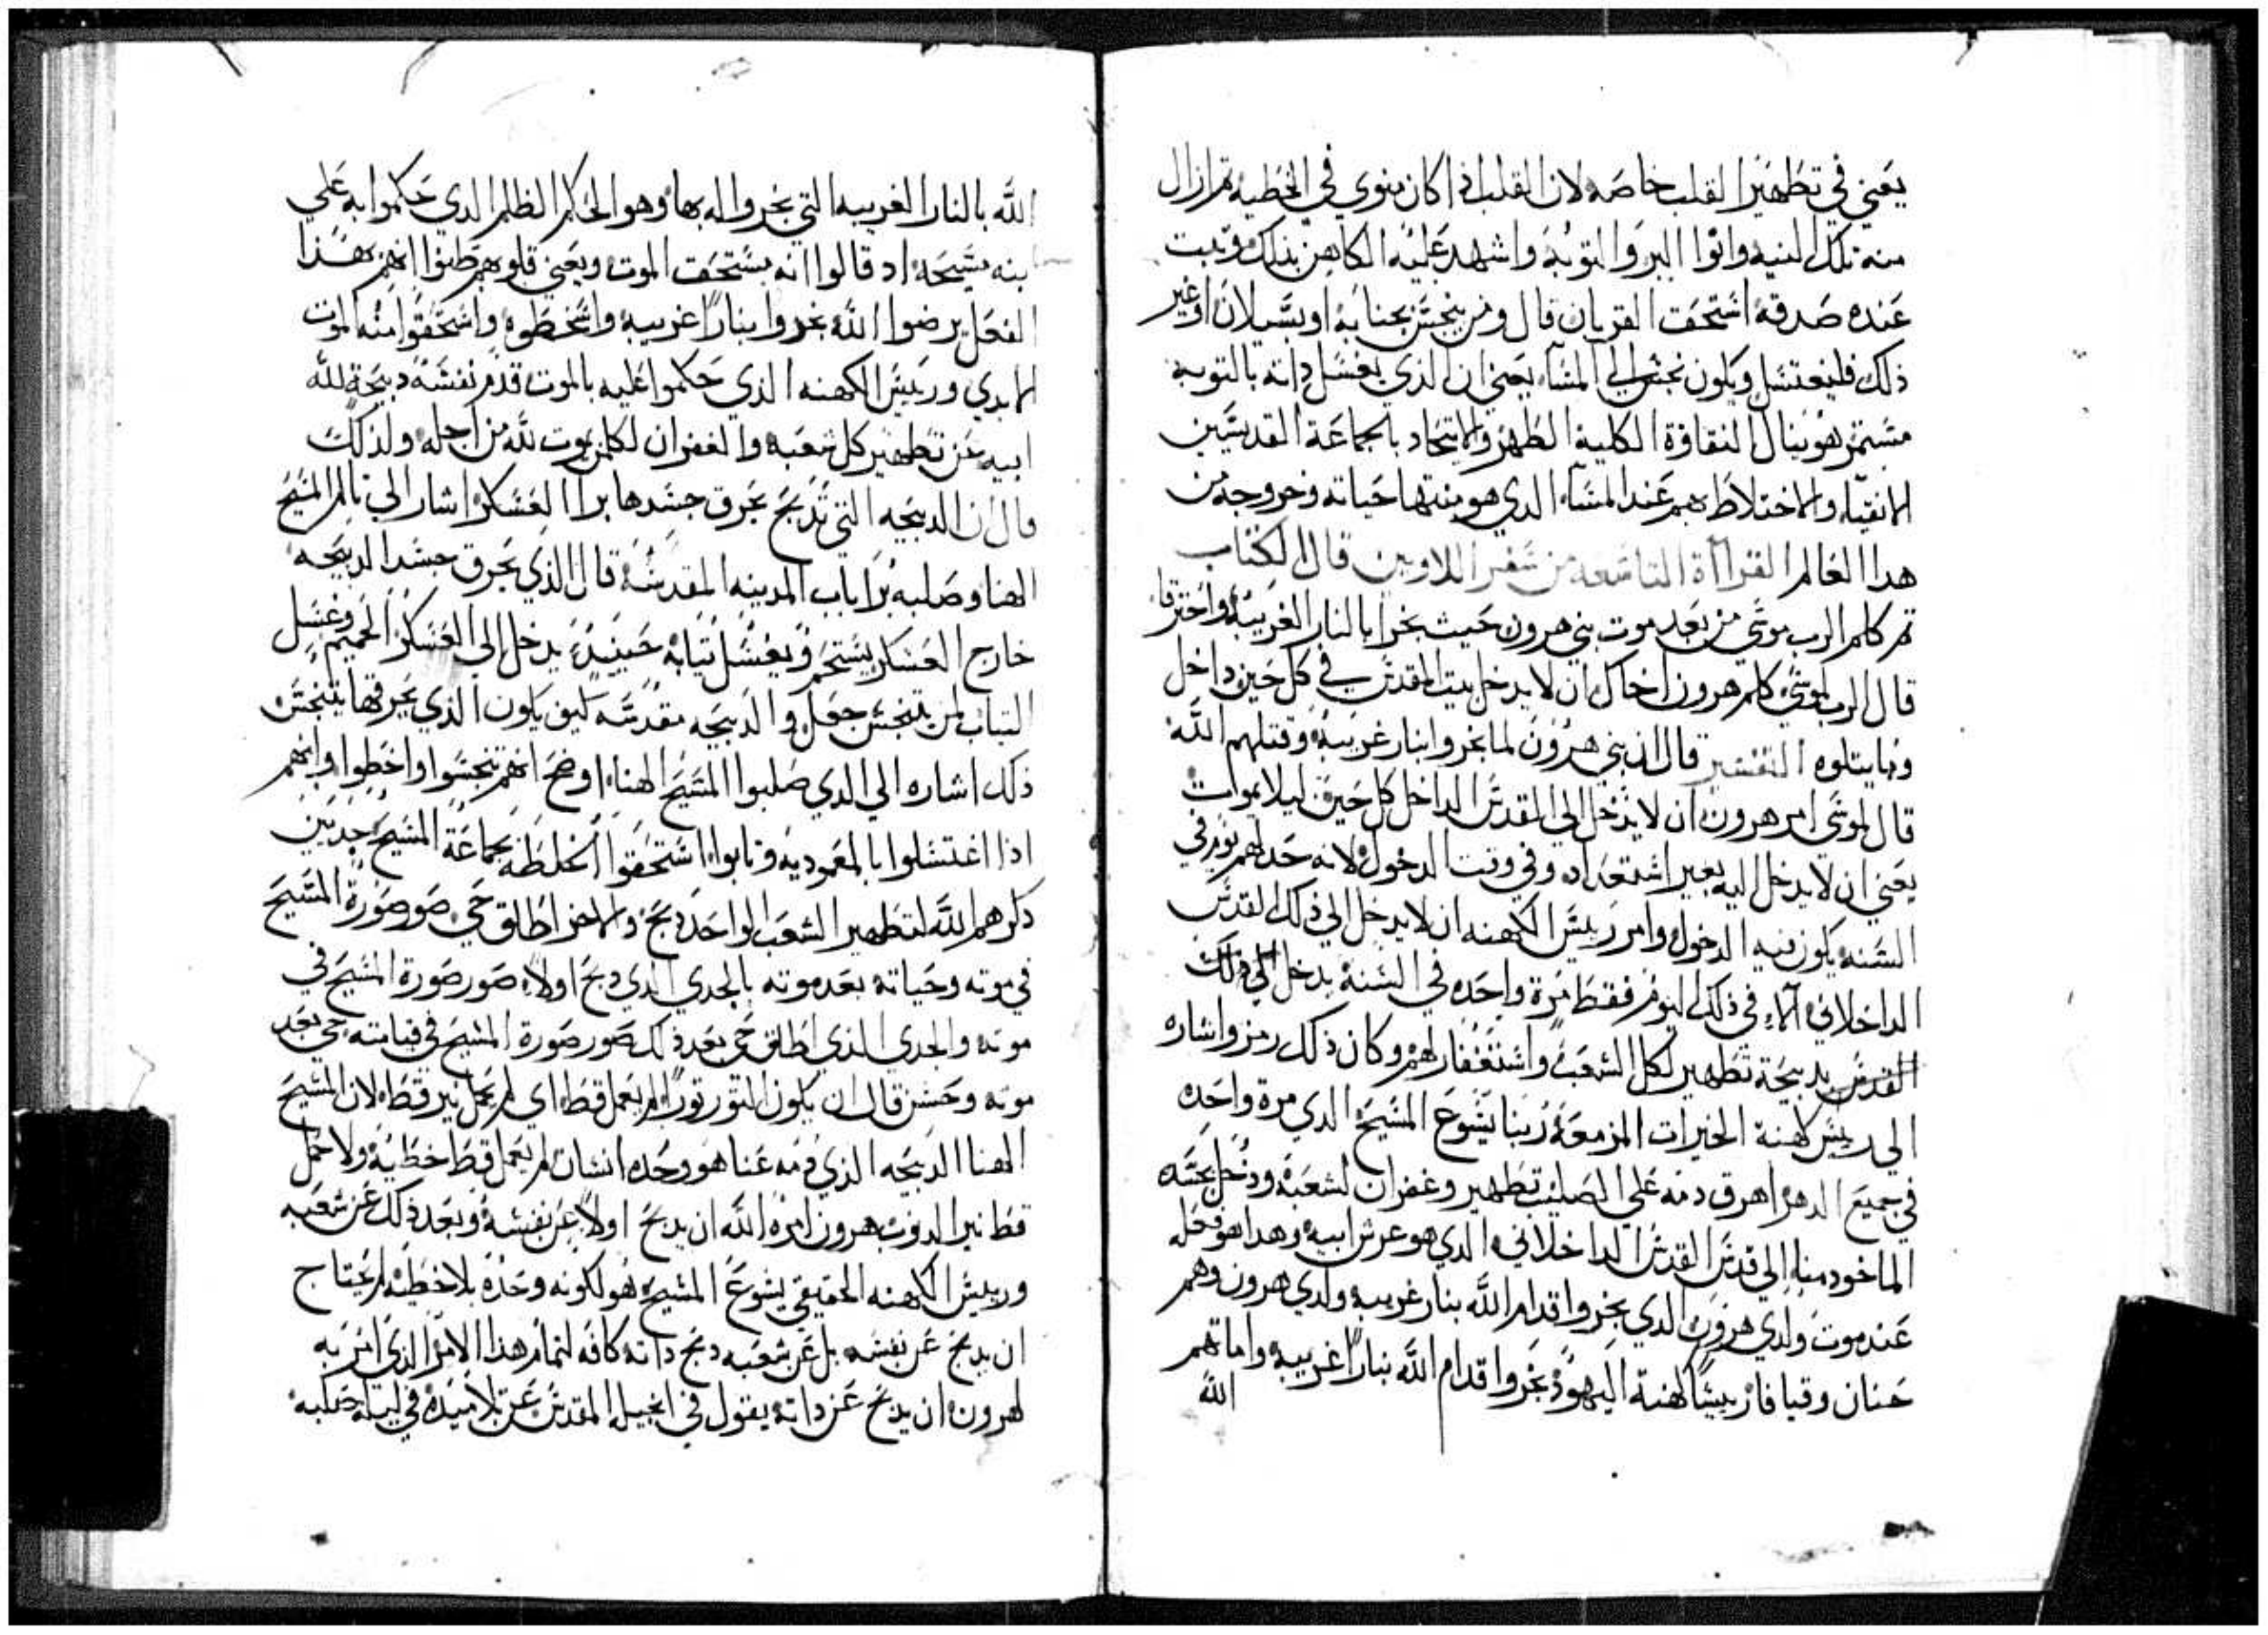 يعني في تطهير القلب خاصه لان القلب اذا كان ينوي في الخطيه تم ازال
منه تلك النيه وانوا البر والتوبه واشهد عليه الكاهن بذلك وتبت
عنده صدقه استحق القربان قال ومن يتنجس بجنابه او بسيلان او غير
ذلك فليغتسل ويكون نجس الي المسآء يعني ان الذي يغسل داته بالتوبه
مستمر هو ينال النقاوة الكلية الطهر والاتحاد بالجماعة القديسين
الانقيآء والاختلاط بهم عند المسآء الدي هو منتها حياته وخروجه من
هدا العالم القرآأة التاسعه من سفر اللاويين قال الكتاب
تم كلم الرب موسي من بعد موت بني هرون حيث بخرا بالنار الغريبه واحترقا
قال الرب لموسي كلم هرون اخاك ان لا يدخل بيت المقدس في كل حين داخل
وما يتلوه التفسير قال ان بني هرون لما بخروا بنار غريبه وقتلهم الله
قال لموسي امر هرون ان لا يدخل الي المقدس الداخل كل حين ليلا يموات
يعني ان لا يدخل اليه بغير استعداد وفي وقت الدخول لانه حد لهم يوم في
السنه يكون فيه الدخول وامر رييس الكهنه ان لا يدخل الي ذلك القدس
الداخلاني الا في ذلك اليوم فقط مرة واحده في السنة يدخل الي ذلك
القدس بدبيحة تطهير لكل الشعب واستغفار لهم وكان ذلك رمز واشاره
الي رييس كهنة الخيرات المزمعة ربنا يسوع المسيح الدي مرة واحده
في جميع الدهر اهرق دمه علي الصليب تطهير وغفران لشعبه ودخل بجسده
الماخود منا الي قدس القدس الداخلاني الدي هو عرش ابيه وهدا هو فعله
عند موت ولدي هرون الدي بخروا قدام الله بنار غريبه ولدي هرون وهم
حنان وقيافا رييسا كهنة اليهود بخروا قدام الله بنارا غريبه واماتهم
الله
الله بالنار الغريبه التي بخروا له بها وهو الحكم الظلم الدي حكموا به علي
ابنه يسيحه اد قالوا انه يستحق الموت ويعني قلوبهم ظنوا انهم بهذا
الفعل يرضوا الله بخروا بنارا غريبه واسخطوه واستحقوا منه الموت
الابدي ورييس الكهنه الذي حكموا عليه بالموت قدم نفسه دبيحة لله
ابيه عن تطهير كل شعبه والغفران لكلمن يموت لله من اجله ولذلك
قال ان الدبيحه التي تدبح يحرق جسدها برا العسكر اشار الي تالم المسيح
الهنا وصلبه برا باب المدينه المقدسة قال الذي يحرق جسد الدبيحه
خارج العسكر يستحم ويغسل تيابه حينيد يدخل الي العسكر الحميم وغسل
التياب لمن يتنجس جعل والدبيحه مقدسه كيف يكون الذي يحرقها يتنجس
ذلك اشاره الي الدي صلبوا المسيح الهنا اوضح انهم تنجسوا واخطوا وانهم
اذا اغتسلوا بالمعموديه وتابوا استحقوا الخلطه بجماعة المسيح جديين
دكرهم الله لتطهير الشعب الواحد دبح والاخر اطلق حي صور صورة المسيح
في موته وحياته بعد موته بالجدي الدي دبح اولا صور صورة المسيح في
موته والجدي الذي اطلق حي بعد ذلك صور صورة المسيح في قيامته حي بعد
موته وحسن قال ان يكون التور تورا لم يعمل قط اي لم يحمل نير قط لان المسيح
الهنا الدبيحه الذي قدمه عنا هو وحده انسان لم يعمل قط خطية ولا حمل
قط نير الدنوب هرون امره الله ان يدبح اولا عن نفسه وبعد ذلك عن شعبه
ورييس الكهنه الحقيقي يسوع المسيح هو لكونه وحده بلا خطيه لم يحتاج
ان يدبح عن نفسه بل عن شعبه دبح داته كافه لتمام هذا الامر الذي امر به
لهرون ان يدبح عن داته يقول في انجيله المقدس عن تلاميده في ليلة صلبه